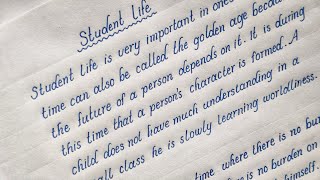 Student Life
Student Life is very important in one's
time can also be called the golden age becau
the future of a person depends on it. It is during
this time that a person's character is formed. A
child does not have much understanding in a
all class he is slowly learning worldliness.
time where there is no bur
is no burden on
himself.